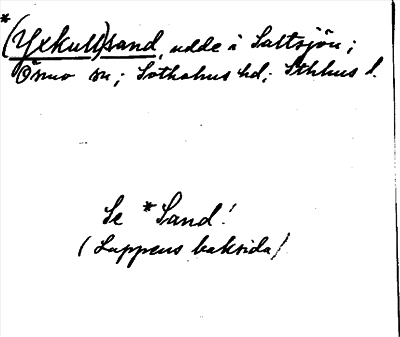 *(Yxkull)sand, udde i Saltsjön;
Ösmo sn; Sotholms hd; Sthlms l.
Se *Sand!
(Lappens baksida)